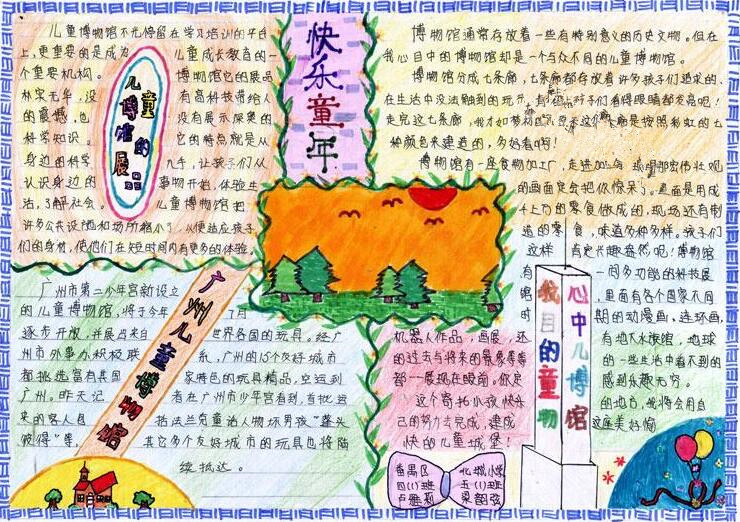 快乐童年
儿童博物馆不光停留在学习培训的平台
上,更重要的是成为 儿童成长教育的一
个重要机构。 博物馆它的展品
朴实无华,没 有高科技带给人
的震撼,也 没有展示深奥的
科学知识。 它的特点就是从
身边的科学 几乎,让孩子们从
认识身边的 事物开始,体验生
活,了解社会。 儿童博物馆把
许多公共设施和场所缩小了,从便适应孩子
们的身材,使他们在短时间内有更多的体验。
儿童博物馆的展品
广州市第二少年宫新设立
的儿童博物馆,将于今年 7月
逐步开放,并展出来自 世界各国的玩具。经广
州市外事办积极联 系,广州的15个友好城市
都挑选富有其国 家特色的玩具精品,空运到
广州。昨天记 者在广州市少年宫看到,首批运
来的客人包 括法兰克童话人物坏男孩“蓬头
彼得”等, 其它多个友好城市的玩具也将陆
续抵达。
广州儿童博物馆
博物馆通常存放着一些有特别意义的历史文物。但在
我心目中的博物馆却是一个与众不同的儿童博物馆。
博物馆分成七条廊,七条廊都存放着许多孩子们追求的、
在生活中没法触到的玩
走完这七条廊,我才如梦初 廊是按照彩虹的七
种颜色来建造的,多好看啊!
博物馆有一座食物加工厂,走进加工 那宏伟壮观
的画面竟会把你惊呆了。里面是用成
千上万的零食做成的,现场还有制
造的零食,味道多种多样。孩子们
这样 肯定兴趣盎然吧!博物馆
有 一间多功能的科技展
馆 里面有各个国家不同
时 期的动漫画,连环画,
机器人作品,画展,还 有地下水族馆,地球
的过去与将来的景象等等 的一些生活中看不到的
都一一展现在眼前,你定 感到乐趣无穷。
这个寄托小孩快乐 的地方,我将会用自
己的努力去完成,建成 这座美好愉
快的儿童城堡!
我目的童物
心中儿博馆
番禺区 北城小学
四(1)班 五(1)班
卢雅莉 梁韶弦